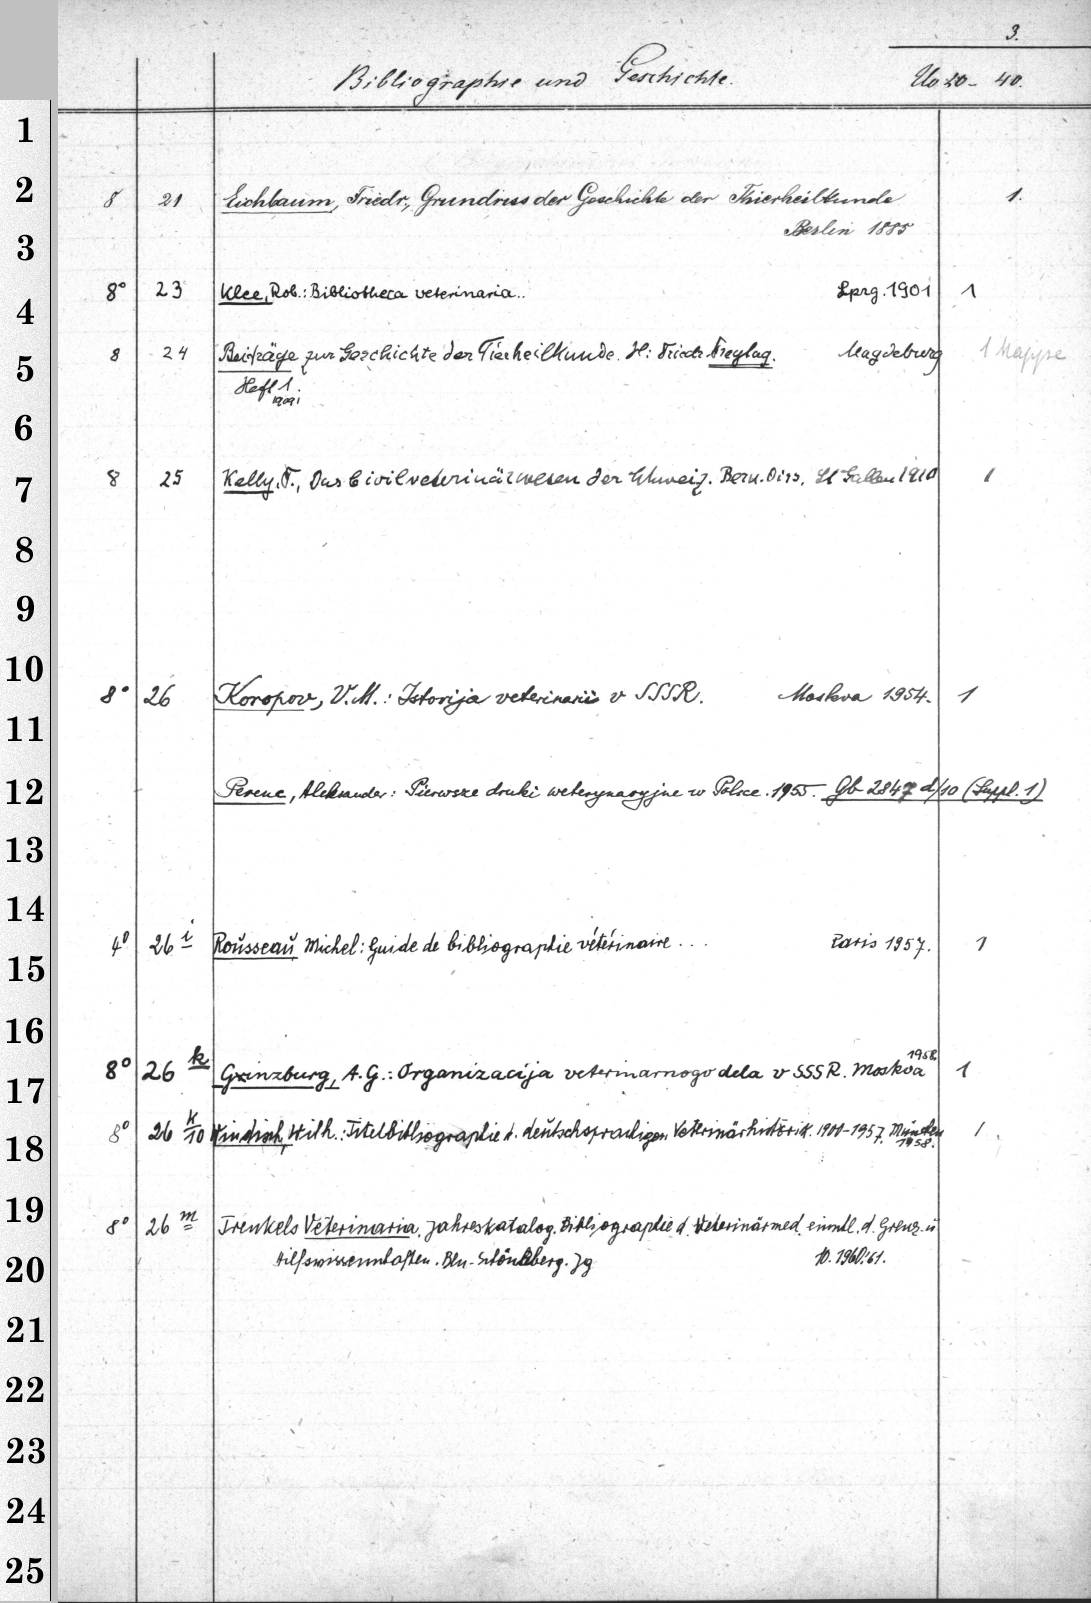 3.
Bibliographie und Geschichte. Uo 20 - 40.
1
2
3
4
5
6
7
8
9
10
11
12
13
14
15
16
17
18
19
20
21
22
23
24
25
8 21 Eichbaum, Friedr., Grundriss der Geschichte der Thierheilkunde 1.
Berlin 1885
8° 23 Klee, Rob.: Bibliotheca veterinaria.. Lpzg. 1901 1
8 24 Beiträge zur Geschichte der Tierheilkunde. H: Friedr. Freytag. Magdeburg 1 Mappe
Heft 1.
1909
8 25 Kelly, F., Das Civilveterinärwesen der Schweiz. Bern. Diss. St Gallen 1910 1
8° 26 Koropov, V.M.: Istorija veterinarii v SSSR. Moskva 1954. 1
Perenc, Aleksander: Pierwsze druki weterynaryjne w Polsce. 1955. Gb 2847 d/10 (Suppl. 1)
4° 26 i Rousseau Michel: Guide de bibliographie vétérinaire ... Paris 1957. 1
1958
8° 26 k Ginzburg, A.G.: Organizacija veterinarnogo dela v SSSR. Moskva 1
8° 26 k/10 Windisch, Wilh.: Titelbibliographie d. deutschsprachigen Veterinärhistorik. 1900-1957. München 1
1958.
8° 26 m Trenkels Veterinaria. Jahreskatalog. Bibliographie d. Veterinärmed. einschl. d. Grenz- u
Hilfswissenschaften. Bln-Schöneberg. Jg 10. 1960/61.